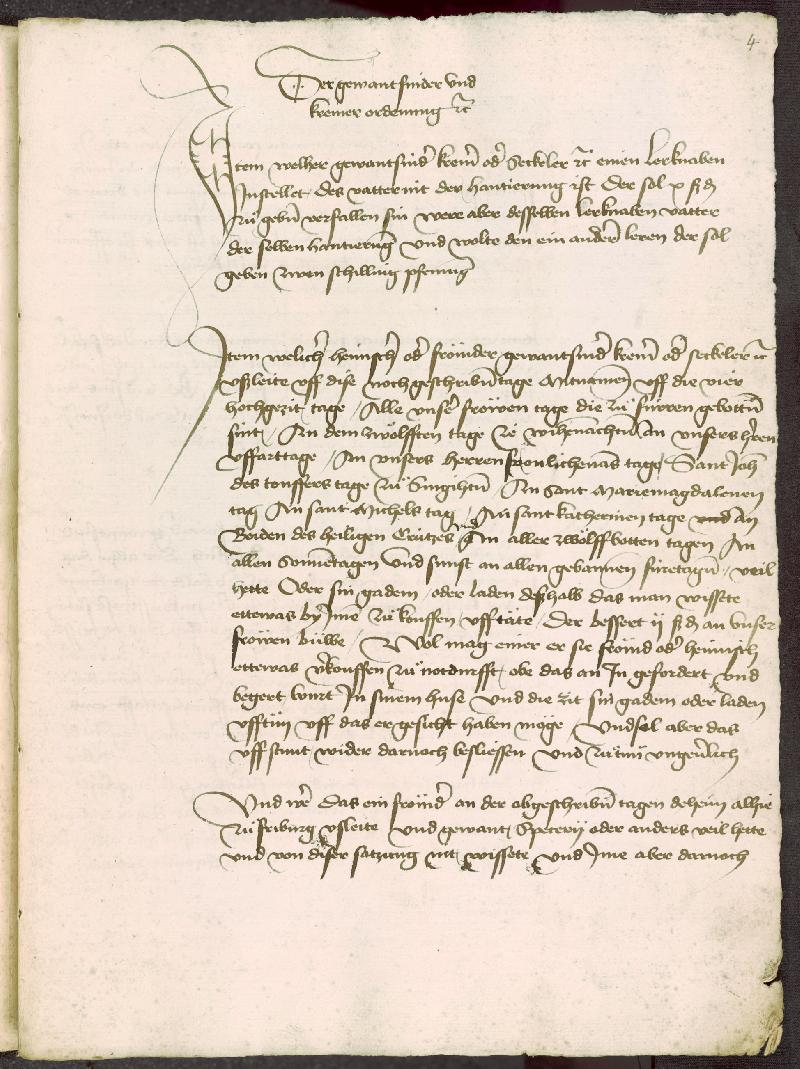 4
Der gewantsnider vnd
kremer ordenung ꝛc
Item welher gewantsnid̛ krem̛ od̛ Seckeler ꝛc einen lerknaben
Instellet des vatter nit der hantierung ist Der sol x ß ₰
zů gebn̄ verfallen sin were aber desselben lerknaben vatter
der selben hantierung vnd wolte den ein ander̛ leren der sol
geben zwen schilling pfennig
Item welich̛ heimsch̛ od̛ frömder gewantsnid̛ krem̛ od̛ seckeler ꝛc
vßleite vff dise nochgeschribn̄ tage Mitnamen vff die vier
hochgezit tage / Alle vnser frowen tage die zů firren gebottn̄
sint / An dem zwölfften tage ze wihenachtn̄ An vnsers h̛ren
vffarttage / An vnsers herren fronlichenams tage / Sant Joh̄
des touffers tage zů Sungihtn̄ / An sant Mariemagdalenen
tag An sant Michels tag / An sant katherinen tage vnd An
Beiden des heiligen Crützes vnd An aller zwölffbotten tagen An
allen Sonnetagen vnd sunst an allen gebannen firetagn̄ / veil
hette Oder sin gadem / oder laden deßhalb das man wissete
ettewas by Ime zů kouffen vff täte / Der bessert ij ß ₰ an vnser
frowen büwe / Wol mag einer er sie frömd od̛ heimisch
ettewas v̛kouffen zů notdurfft / obe das an In gefordert vnd
begert wurt In sinem huse vnd die zit sin gadem oder laden
vfftun vff das er gesicht haben möge / Vnd sol aber das
vff stunt wider darnoch besliessen vnd zůtun vngeưlich
Vnd wer̛ das ein frömd̛ an der obgeschribn̄ tagen deheim alhie
zů friburg vsleite vnd gewant / Specery oder anders veil hette
vnd von diser satzung nit wissete vnd Ime aber darnoch